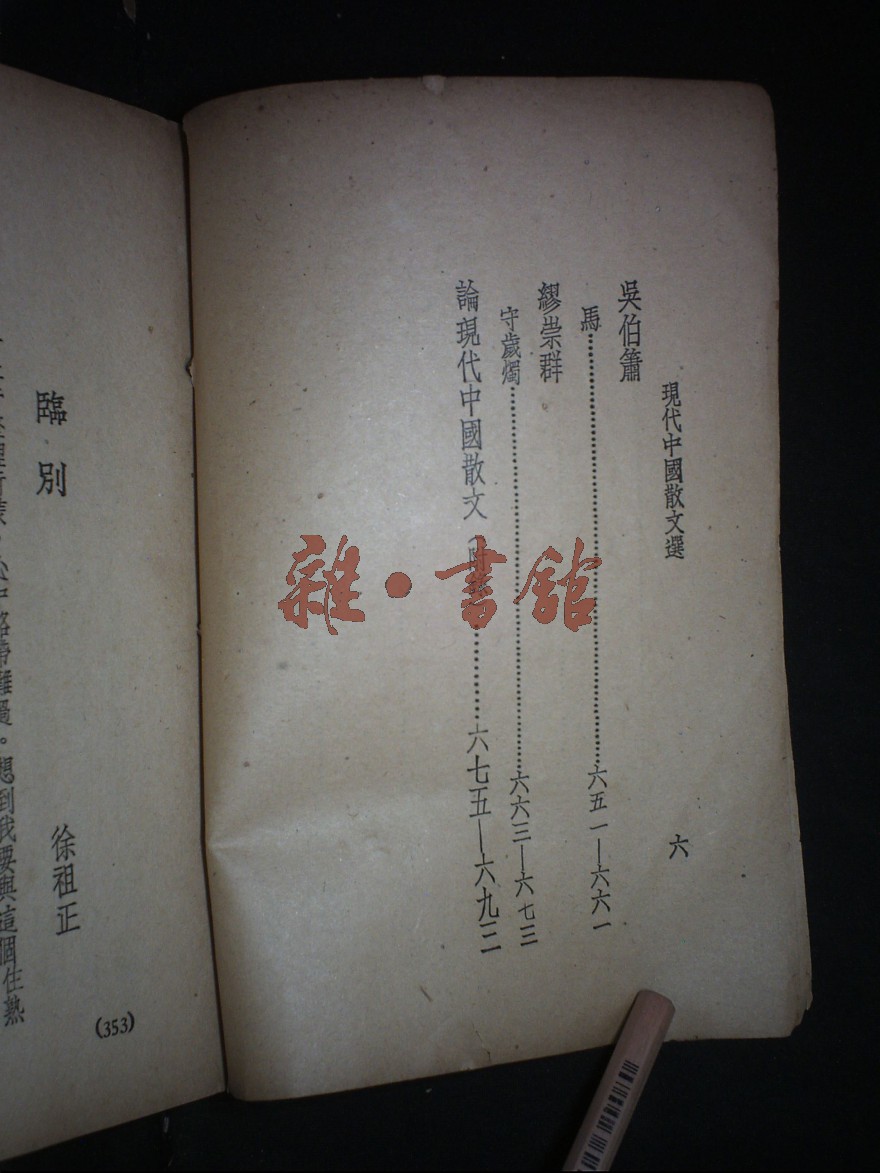 現代中國散文選
六
吳伯簫
馬……六五一—六六一
繆崇群
守歲燭……六六三—六七三
論現代中國散文……六七五—六九三
雜·書館
臨別
徐祖正
想到我要與這個住熟
(353)